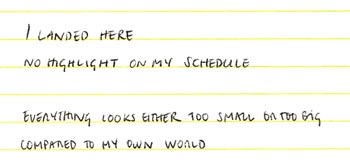 I LANDED HERE
NO HIGHLIGHT ON MY SCHEDULE
EVERYTHING LOOKS EITHER TOO SMALL OR TOO BIG
COMPARED TO MY OWN WORLD